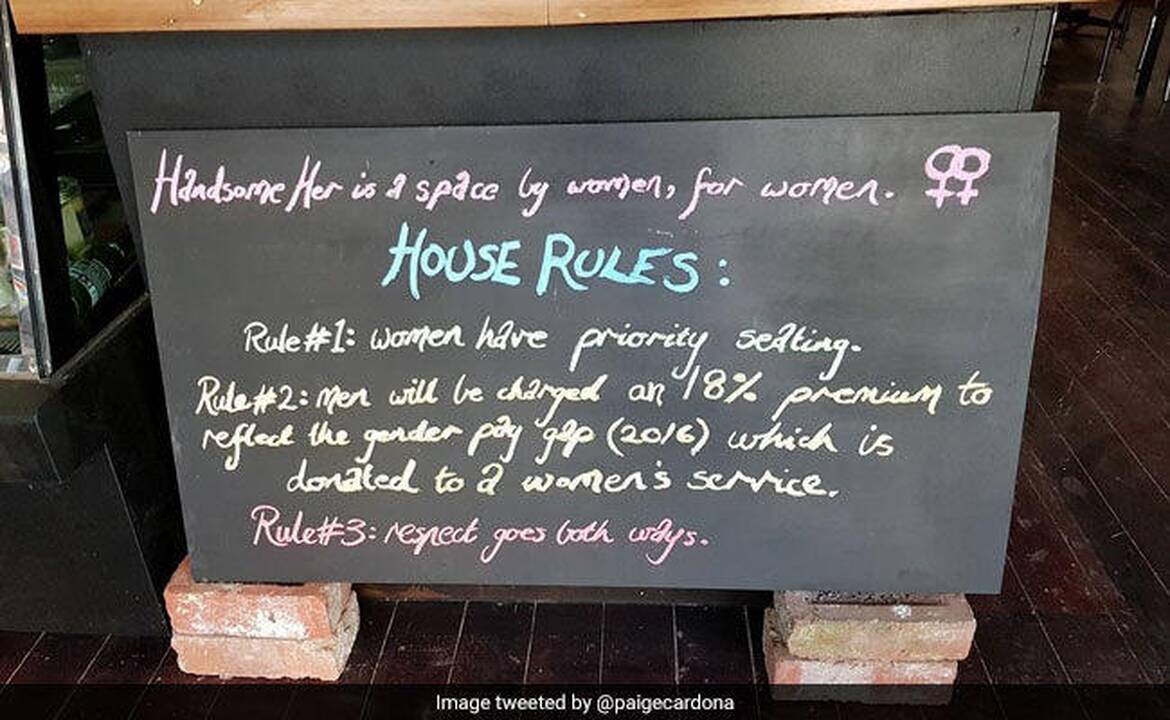 Handsome Her is a space by women, for women.
HOUSE RULES:
Rule#1: women have priority seating.
Rule#2: men will be charged an 18% premium to
reflect the gender pay gap (2016) which is
donated to a women's service.
Rule#3: respect goes both ways.
Image tweeted by @paigecardona